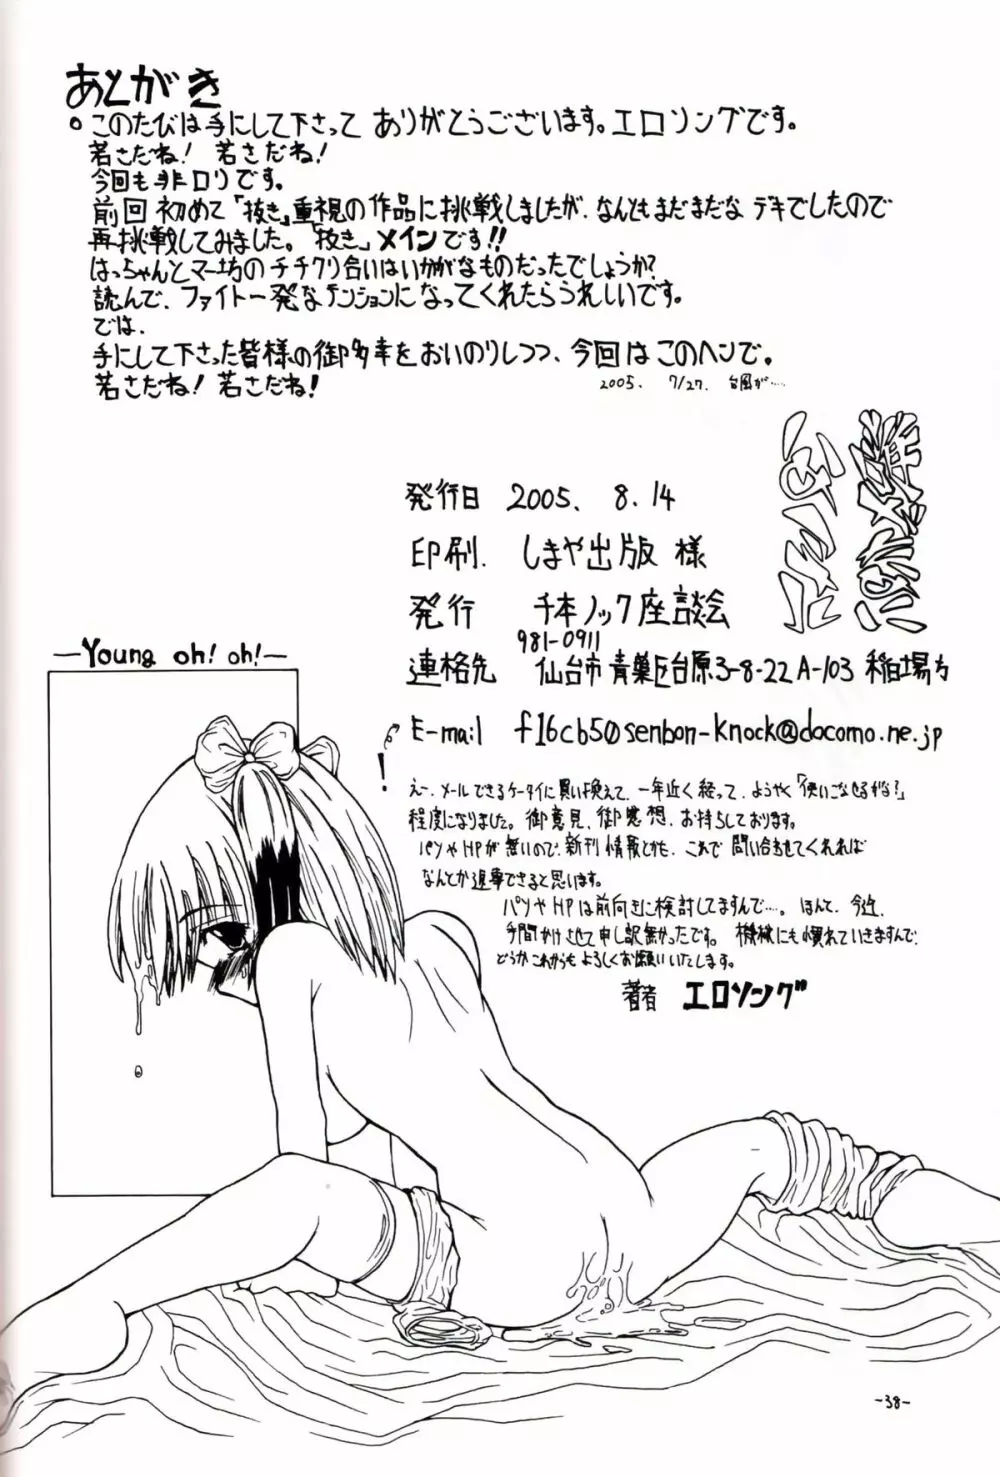 あとがき
。このたびは手にして下さって ありがとうございます。エロソングです。
若さだね! 若さだね!
今回も非ロリです。
前回 初めて「抜き」重視の作品に挑戦しましたが、なんともまだまだな デキでしたので
再挑戦してみました。「抜き」メインです!!
はっちゃんとマー坊のチチクリ合いはいかがなものだったでしょうか?
読んで、ファイト一発なテンションになってくれたらうれしいです。
では、
手にして下さった皆様の御多幸をおいのりしつつ、今回はこのヘンで。
若さだね! 若さだね!
2005. 7/27. 台風が.....
発行日 2005. 8. 14
印刷. しまや出版 様
発行 千本ノック座談会
981-0911
連絡先 仙台市青葉区台原3-8-22 A-103 稲場方
E-mail f16cb50senbon-knock@docomo.ne.jp
えー、メールできるケータイに買い換えて、一年近く経って、ようやく「使いこなせるかな?」
程度になりました。御意見、御感想、お待ちしております。
パソやHPが無いので、新刊情報とかも、これで問い合わせてくれれば
なんとか返事できると思います。
パソやHPは前向きに検討してますんで....。ほんと、今迄
手間かけさせて申し訳無かったです。機械にも慣れていきますんで、
どうかこれからもよろしくお願いいたします。
著者 エロソング
—Young oh! oh!—
-38-